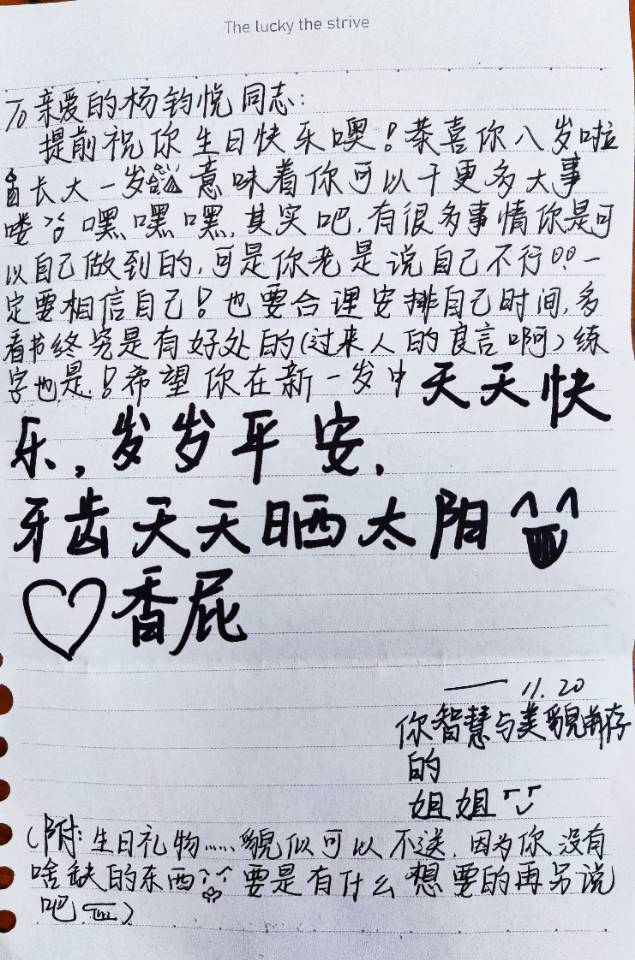 The lucky the strive
To 亲爱的杨钧悦同志:
提前祝你生日快乐噢!恭喜你八岁啦
长大一岁 意味着你可以干更多大事
喽 嘿嘿嘿,其实吧,有很多事情你是可
以自己做到的,可是你老是说自己不行!!一
定要相信自己!也要合理安排自己时间,多
看书终究是有好处的(过来人的良言啊)练
字也是!希望你在新一岁中天天快
乐,岁岁平安,
牙齿天天晒太阳
香屁
——11.20
你智慧与美貌并存
的
姐姐
(附:生日礼物……貌似可以不送,因为你没有
啥缺的东西 要是有什么想要的再另说
吧)